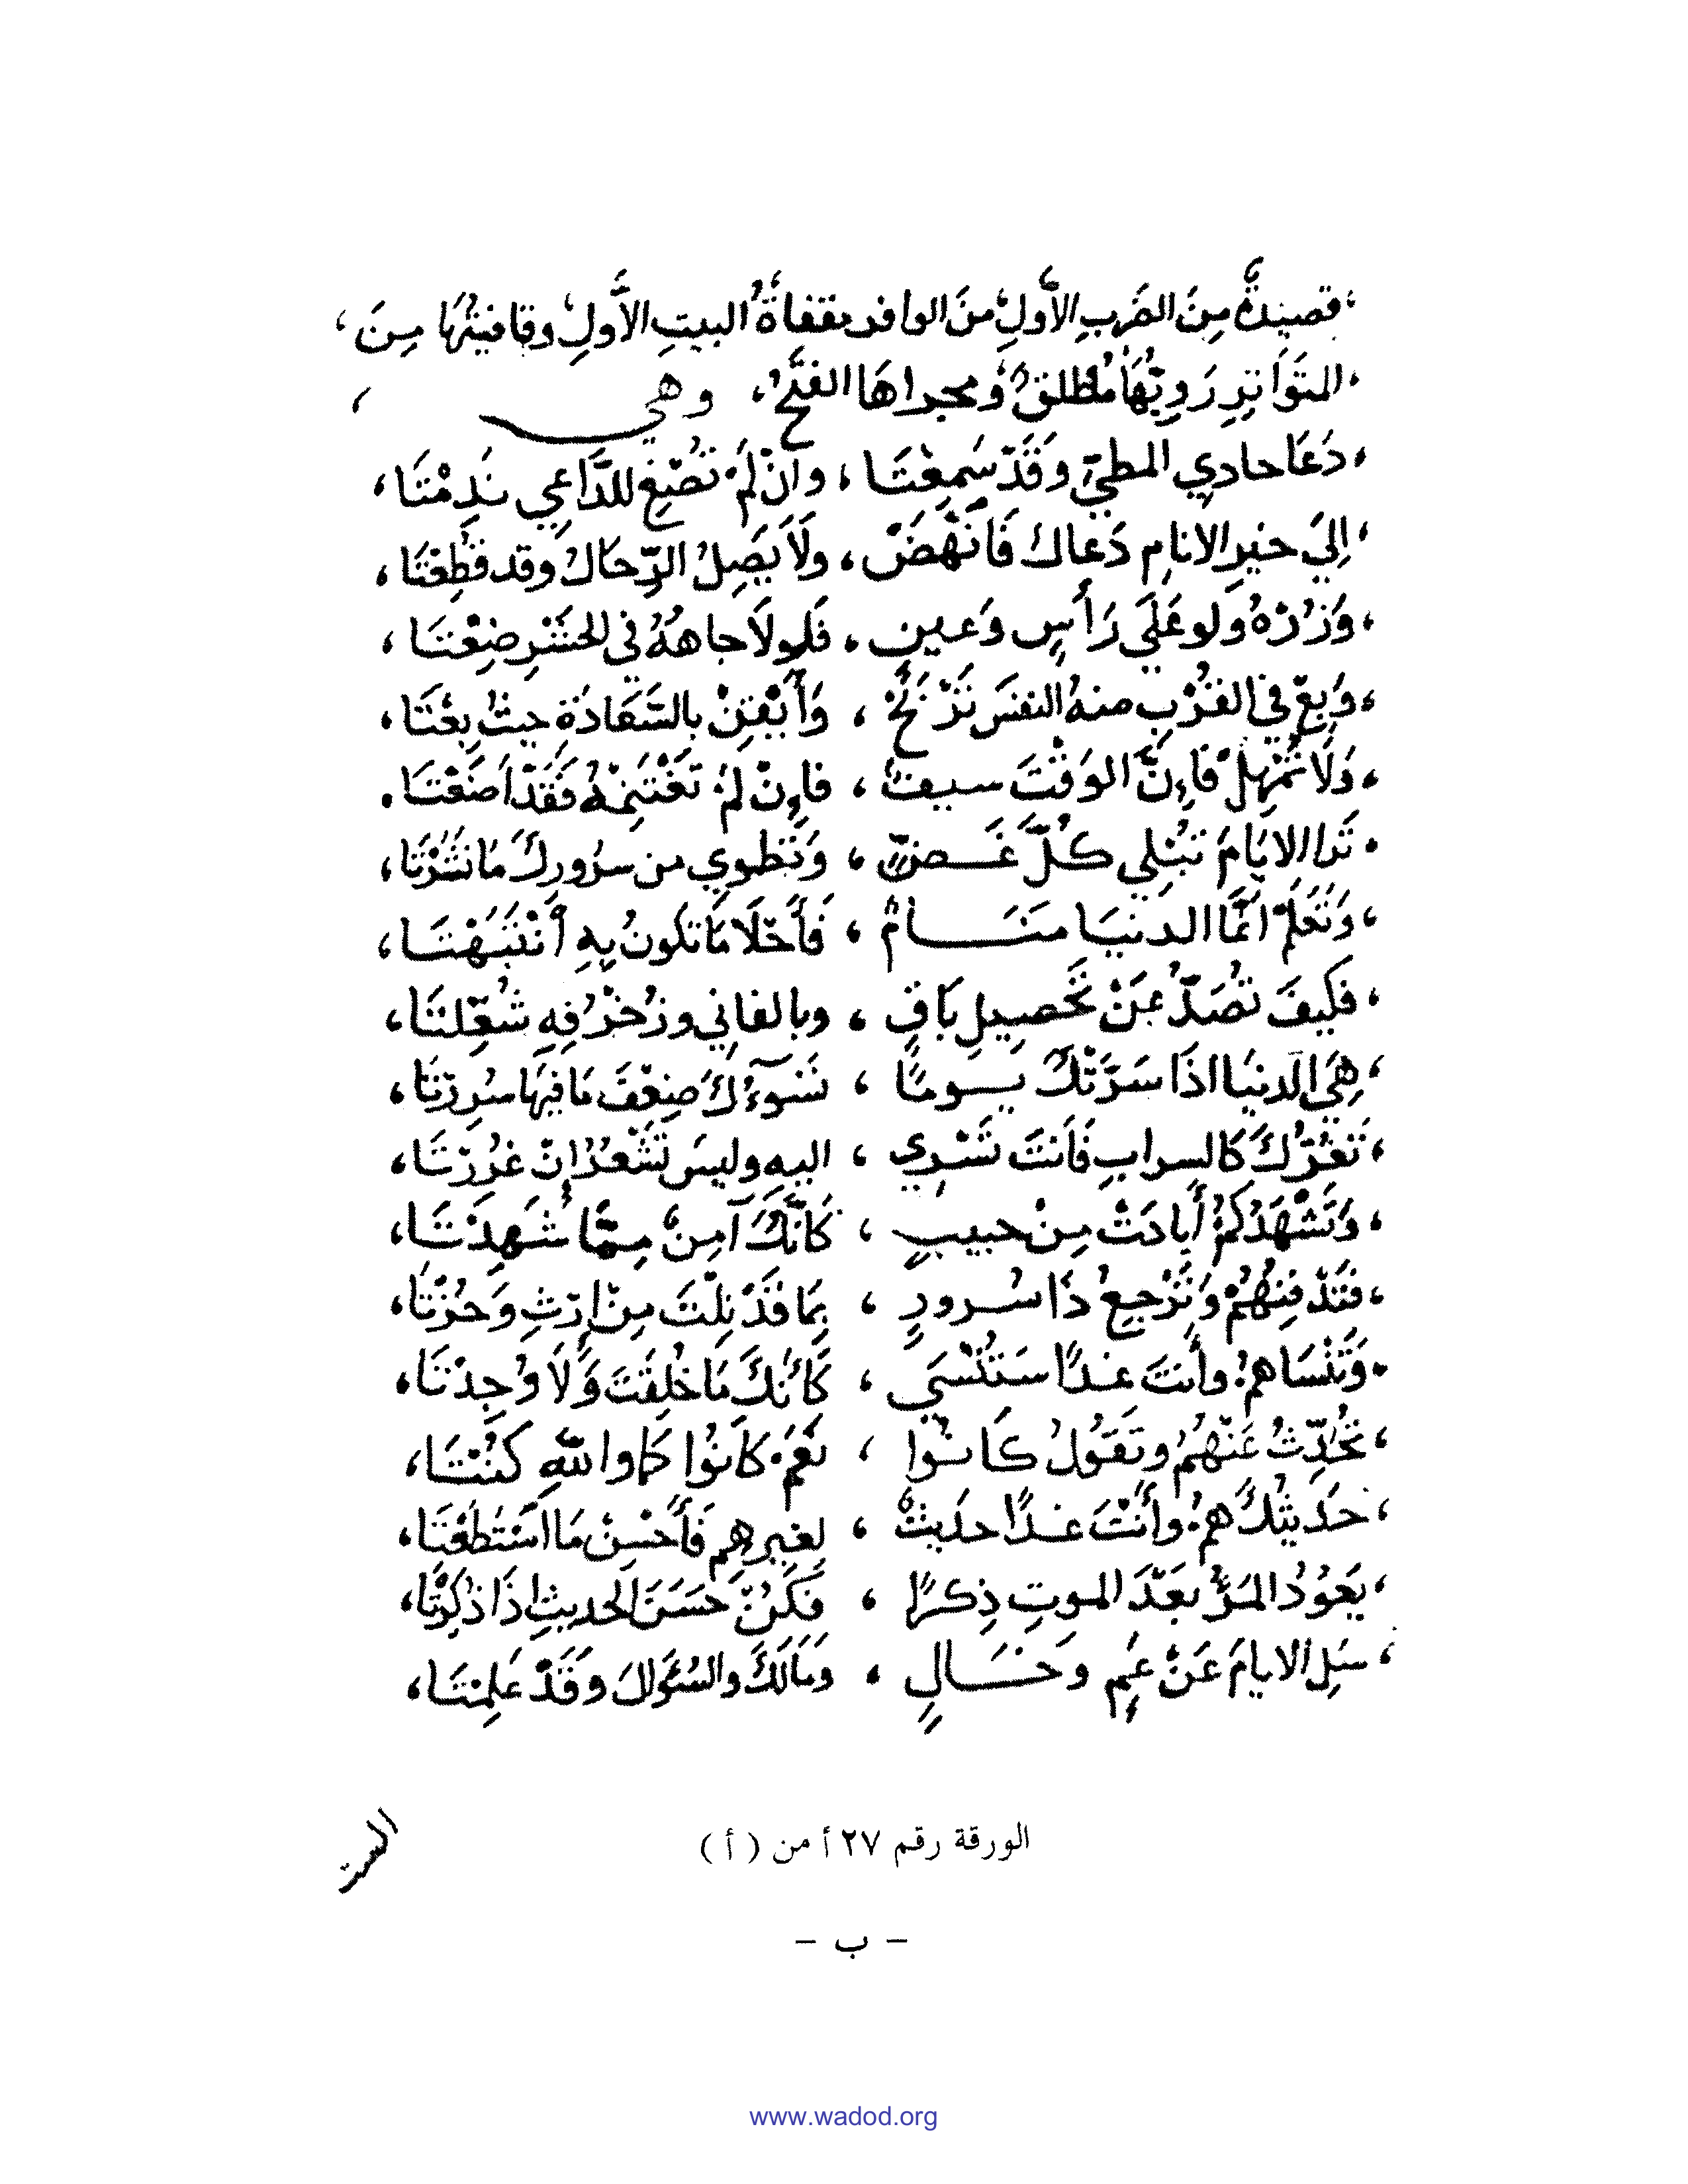 ، قصيدةٌ مِنَ الضَربِ الأَولِ، منَ الوافر مقفاةُ البيتِ الأَولِ، وقافيتُهَا مِنَ ،
، المتَوَاتِرِ رَوِيّهَا مُطلقٌ، ومجراهَا الفتْحُ، وهي ،
، دَعَا حادي المطيّ وَقَدْ سَمِعْتَا ، وانْ لَمْ تُصْغِ للدَّاعِي نَدِمْتَا ،
، إِليَ خيْرِ الانامِ دَعاك فَانْهَضْ ، ولَا يَصِلُ الرّحَالُ وقد قطِعْتَا ،
، وَزُرْهُ ولو عَلَي رَأْسٍ وَعينٍ ، فَلولَا جاههُ في الحشْرِ ضِعْتَا ،
، وَبِعْ في القُرْبِ منهُ النفسَ تَرْبَحْ ، وَأَيْقِنْ بالسَّعَادَةِ حيثُ بِعْتَا ،
، وَلَا تُمْهِلْ فَإِنَّ الوَقْتَ سيفٌ ، فإِنْ لمْ تَغْتَنِمْهُ فَقَدْ اَضَعْتَا ،
، تَرا الايَامَ تبْلِي كُلَّ غَـضٍّ ، وَتَطوِي من سرُورِكَ مَا نَشَرْتَا ،
، وَتَعْلَمْ انَّمَا الدنيَا مَنَـامٌ ، فَأَحْلَا مَا تكونُ بِهِ أَنْتَبَهْتَا ،
، فكيفَ تَصُدّ عَنْ تَحصِيلِ بَاقٍ ، وبالفانِي وزُخْرُفِهِ شُغِلتَا ،
، هِيَ الدنيَا اذَا سَرَّتْكَ يـومًا ، تَسُوءُكَ ضِعْفَ مَا فيهَا سُرِرْتَا ،
، تَغُرّكَ كَالسرابِ فَأَنتَ تَسْرِي ، اليهِ وليسَ تَشْعُرُ انْ غُرِرْتَا ،
، وَتَشْهَدُ كمْ أَبادَتْ مِنْ حبيبٍ ، كَانَّكَ آمِنٌ مِمَّا شَهِدْتَا ،
، فتَدْفِنُهُمْ وَتَرْجِعُ ذَا سُرورٍ ، بِمَا قَدْ نِلْتَ مِنْ إِرْثٍ وَحُزْتَا ،
، وَتَنْسَاهمْ وأَنتَ غدًا سَتُنْسَي ، كَأَنَّكَ مَا خُلِقْتَ وَلَا وُجِدْتَا ،
، تُحَدِّثُ عَنْهُمُ وتَقُولُ كَانُوا ، نَعَمْ كَانُوا كمَا واللهِ كُنْتَا ،
، حَدِيثُكَ همْ وأَنْتَ غدًا حدَيثٌ ، لِغَيرِهِم فَأَحْسِنْ مَا اسْتَطَعْتَا ،
، يَعُوْدُ المَرْءُ بعْدَ الموتِ ذِكرًا ، فَكُنْ حَسَنَ الحديثِ اذَا ذُكِرْتَا ،
، سَلِ الايامَ عَنْ عَمٍ وخَـالٍ ، ومَالَكَ والسُّؤَالَ وَقَدْ عَلِمْتَا ،
الورقة رقم ٢٧ أ من ( أ )
- ب -
www.wadod.org